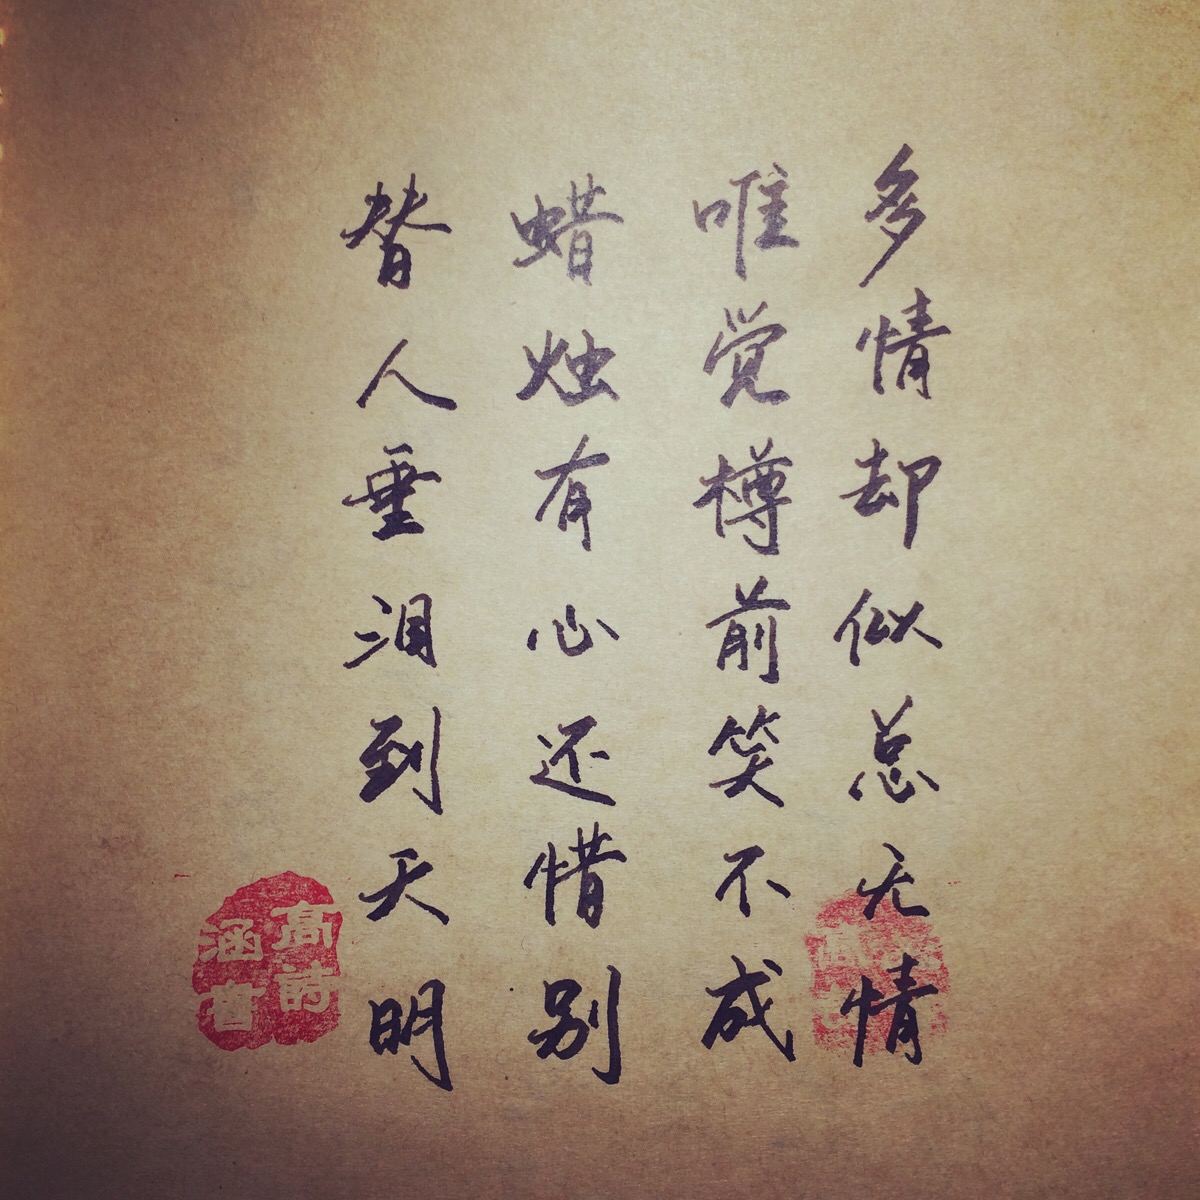 多情却似总无情
唯觉樽前笑不成
蜡烛有心还惜别
替人垂泪到天明
高诗
涵